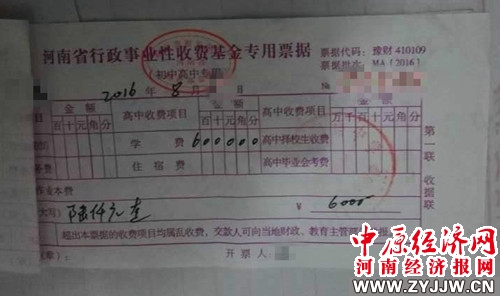 河南省行政事业性收费基金专用票据
票据代码:豫财 410109
票据批次:MA [2016]
初中高中专用
2016 年 8 月
金 额 高中收费项目 金 额 高中收费项目 金 额
百 十 元 角 分 百 十 元 角 分 万 千 百 十 元 角 分
学 费 600000 高中择校生收费
务费 住 宿 费 高中毕业会考费
作业本费
大写) 陆仟元整 ¥ 6000
超出本票据的收费项目均属乱收费,交款人可向当地财政、教育主管
章): 开 票 人
第一联
收据联
中原经济网
河南经济报网
WWW.ZYJJW.CN